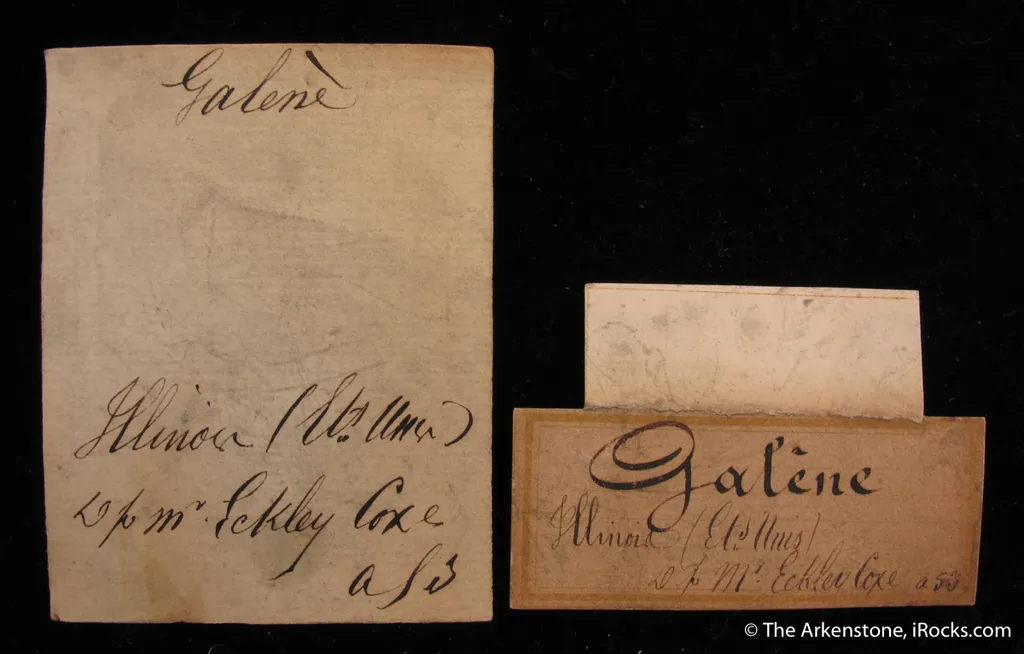 Galenè
Illinois (Ets Unis)
D p Mr. Eckley Coxe
a 53
Galène
Illinois (Ets Unis)
D p Mr. Eckley Coxe a 53
© The Arkenstone, iRocks.com